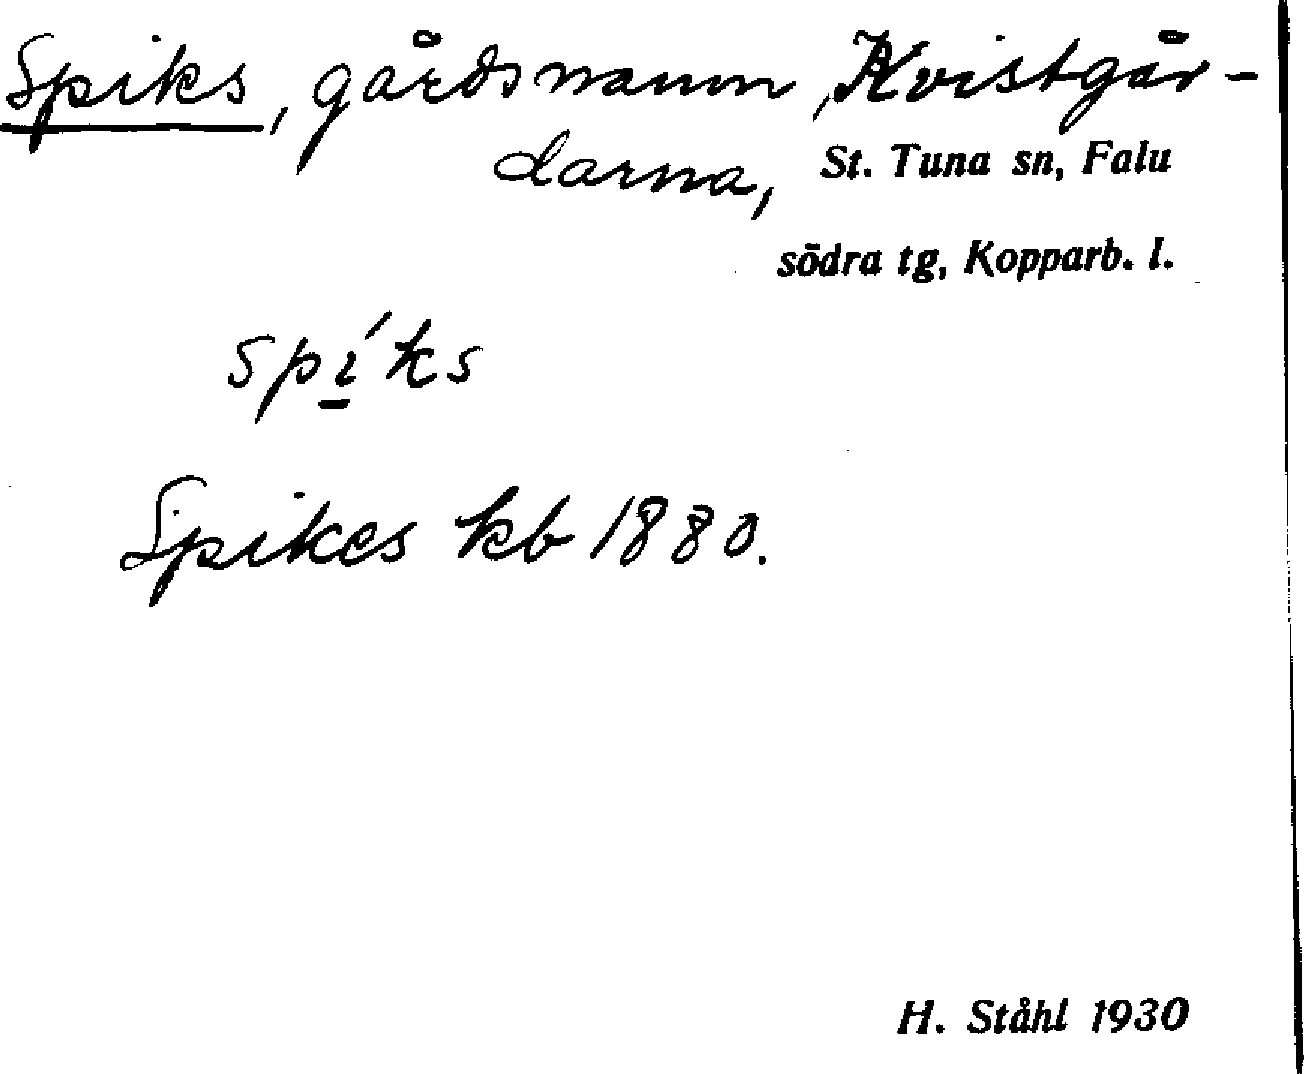 Spiks, gårdsnamn, Kvistgår-
darna, St. Tuna sn, Falu
södra tg, Kopparb. l.
spí̱ks
Spikes kb 1880.
H. Ståhl 1930